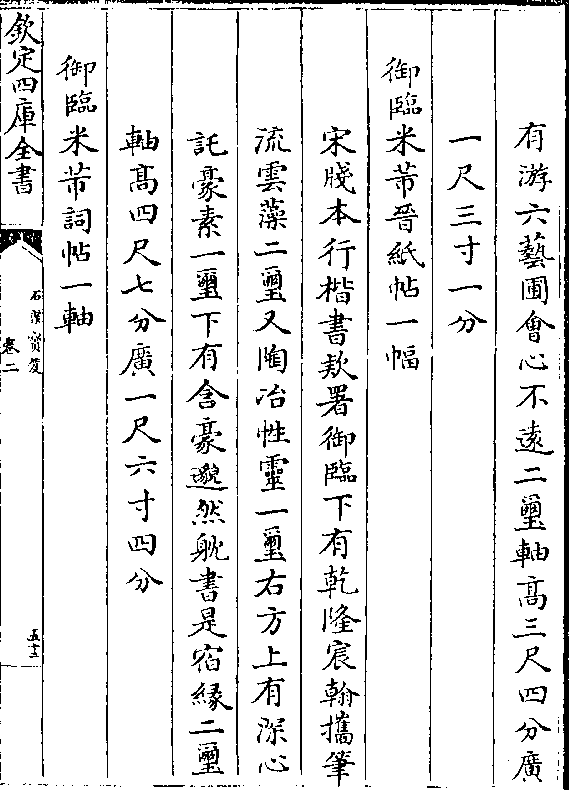 有游六藝圃會心不遠二璽軸高三尺四分廣
一尺三寸一分
御臨米芾晉紙帖一幅
宋牋本行楷書款署御臨下有乾隆宸翰攜筆
流雲藻二璽又陶冶性靈一璽右方上有深心
託豪素一璽下有含豪邈然躭書是宿緣二璽
軸髙四尺七分廣一尺六寸四分
御臨米芾詞帖一軸
欽定四庫全書
石渠寶笈
卷二
五十三